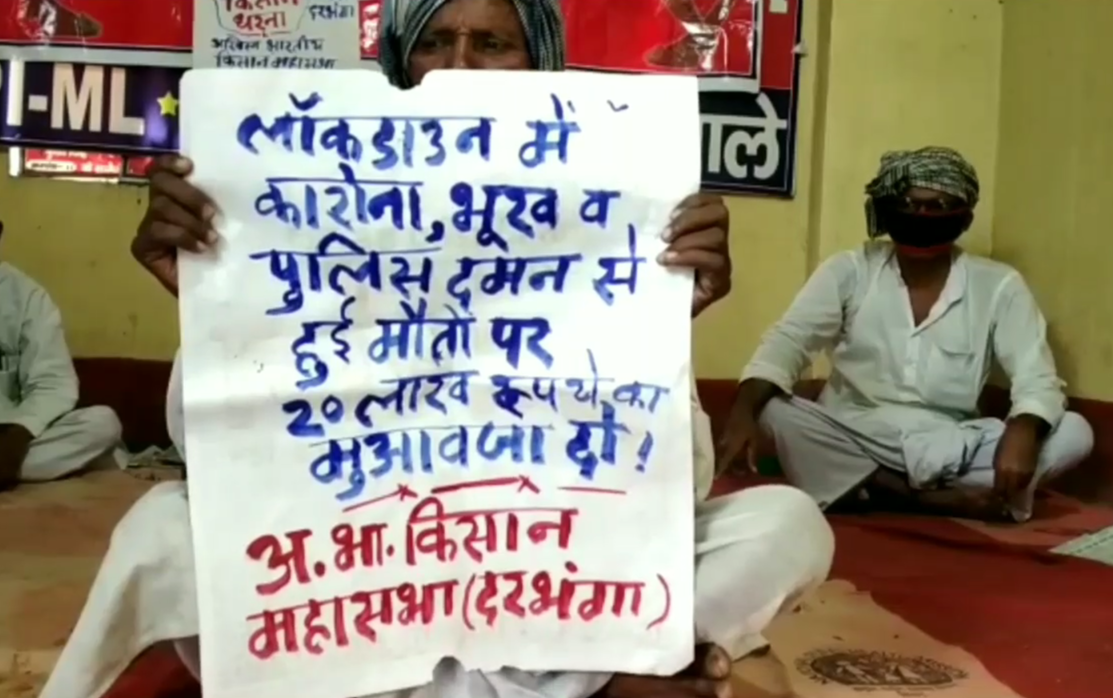 किसान
धरना
दरभंगा
अखिल भारतीय
किसान महासभा
I-ML
ाले
लॉकडाउन में
कारोना, भूख व
पुलिस दमन से
हुई मौतों पर
२० लाख रूपये का
मुआवजा दो!
अ. भा. किसान
महासभा (दरभंगा)